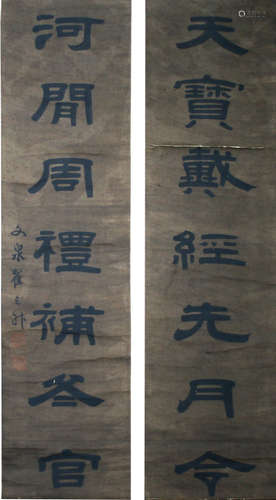 天寶戴經先月令
河間周禮補冬官